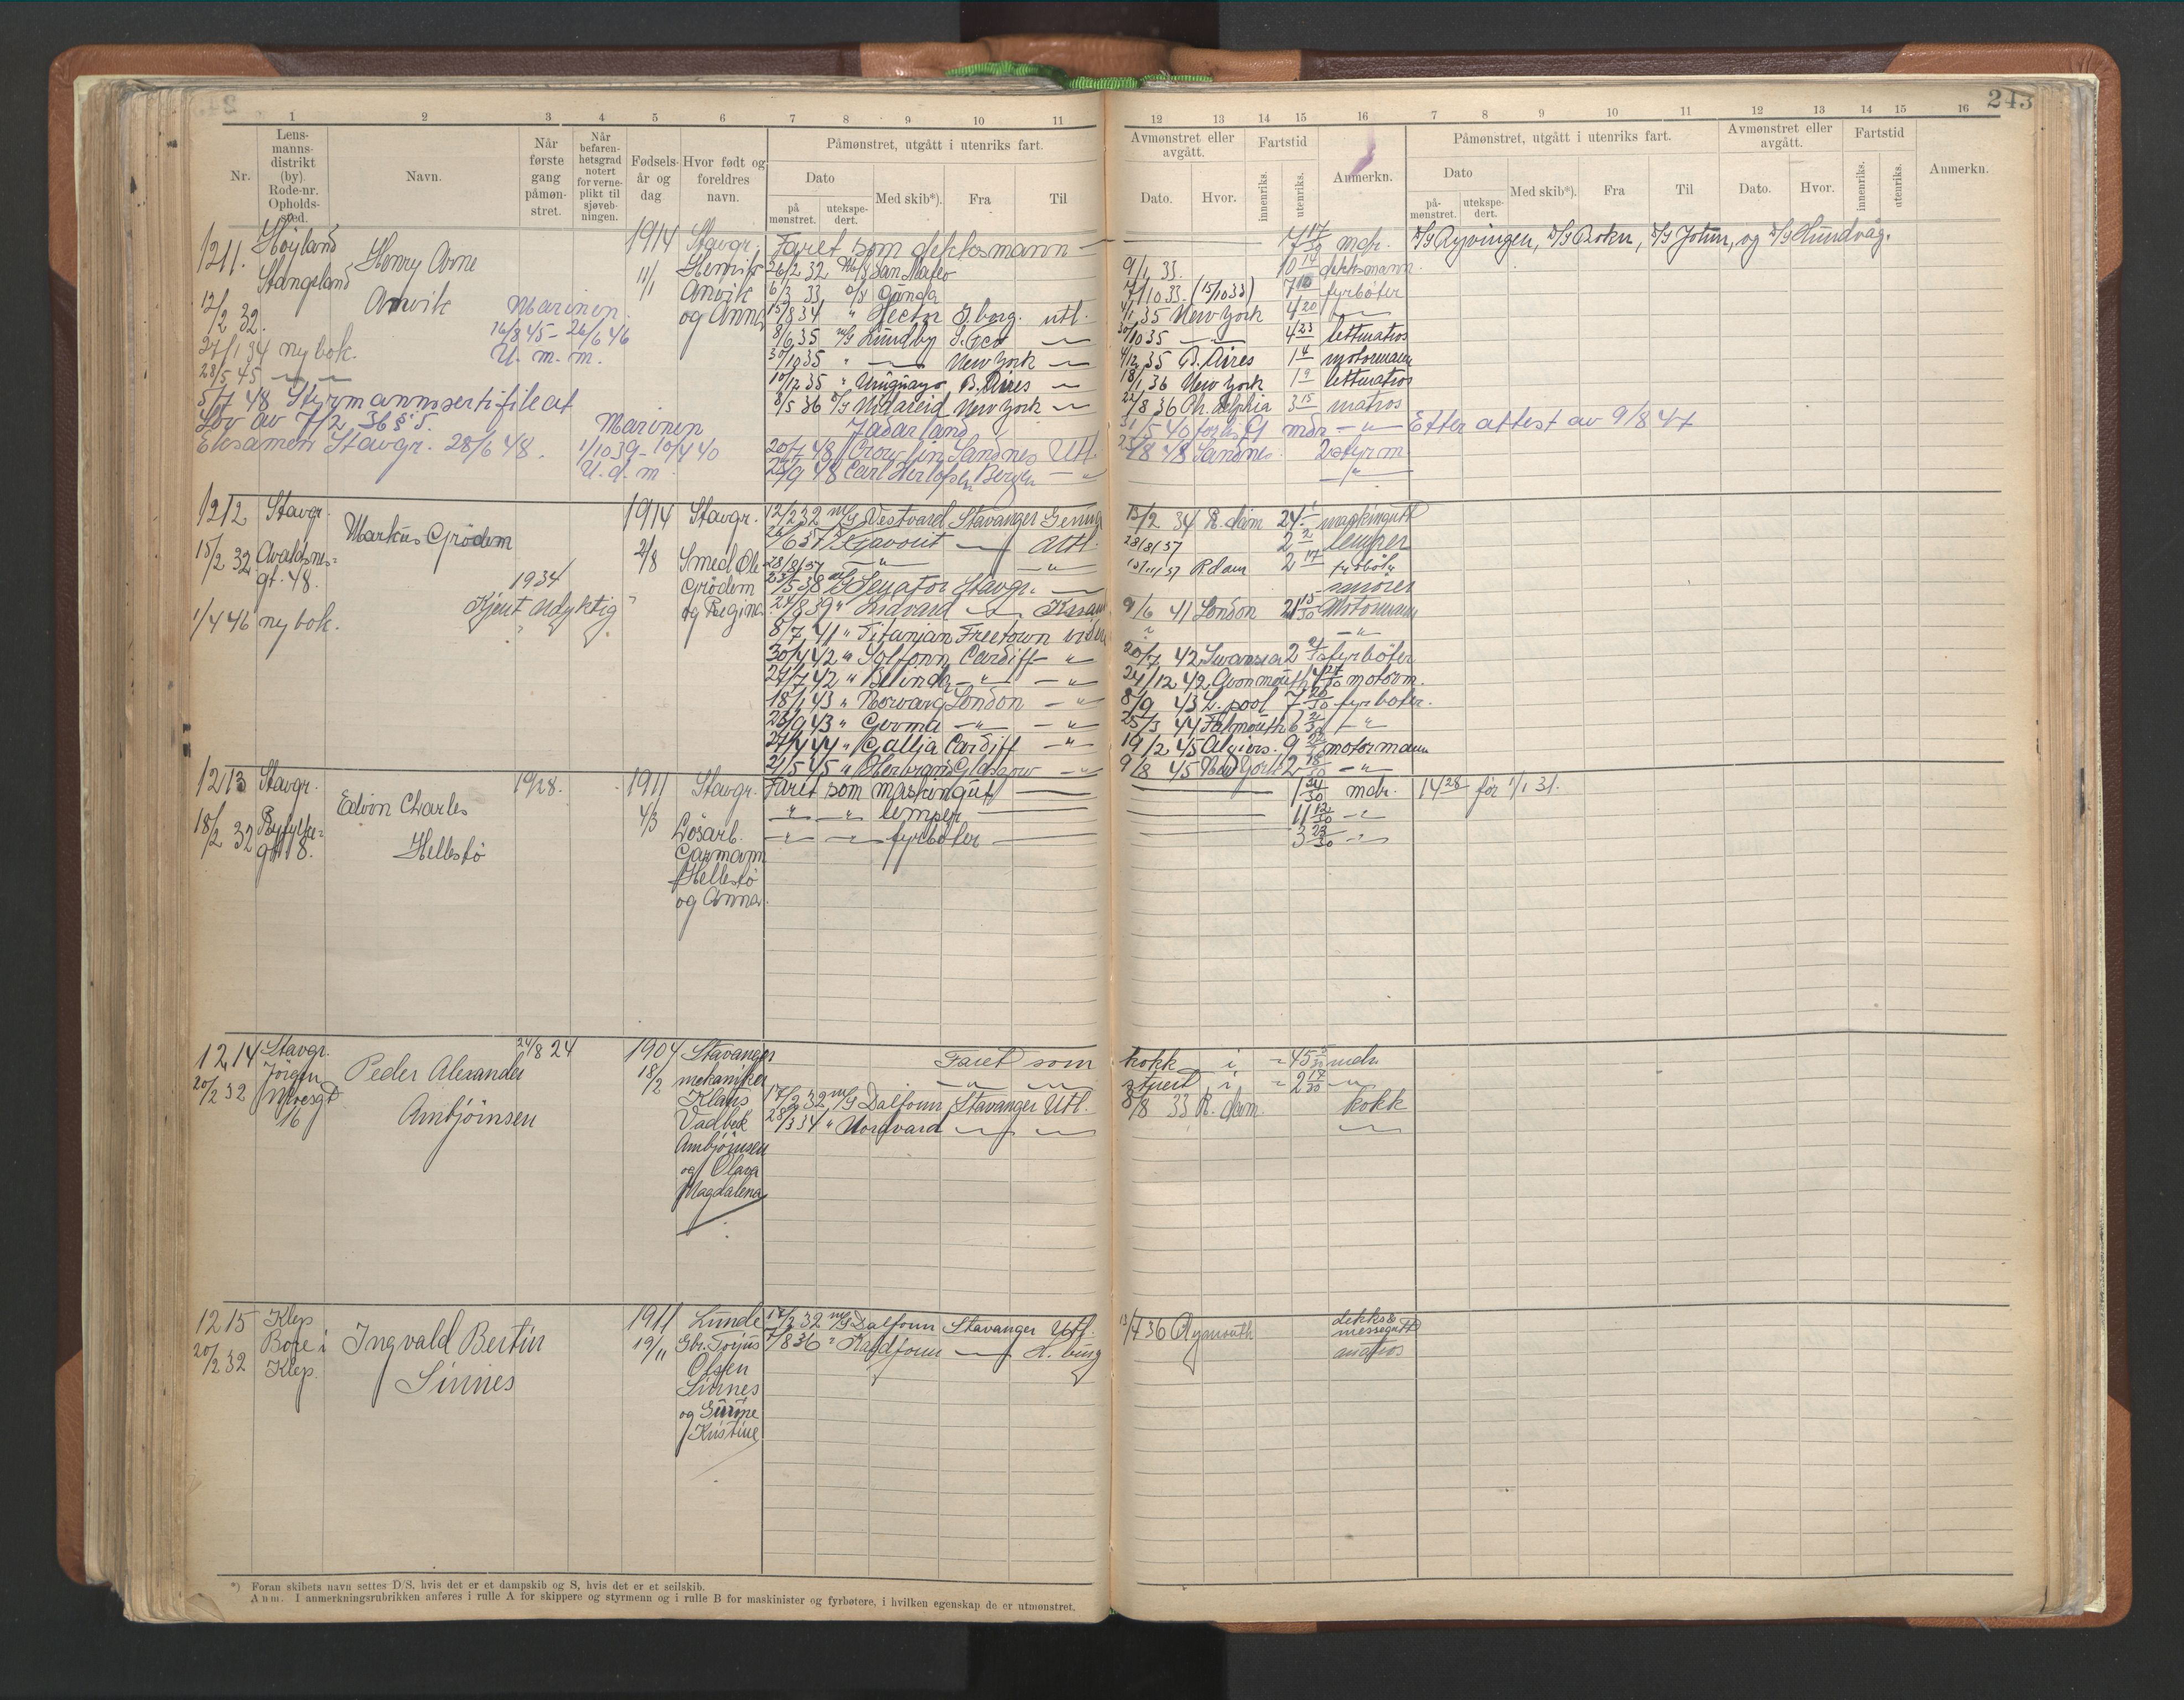 243
1 2 3 4 5 6 7 8 9 10 11 12 13 14 15 16 7 8 9 10 11 12 13 14 15 16
Nr.
Lens-
manns-
distrikt
(by).
Rode-nr.
Opholds-
sted.
Navn.
Når
første
gang
påmøn-
stret.
Når
befaren-
hetsgrad
notert
for verne-
plikt til
sjøveb-
ningen.
Fødsels-
år og
dag
Hvor født og
foreldres
navn.
Påmønstret, utgått i utenriks fart.
Dato
på
mønstret.
utekspe-
dert.
Med skib*).
Fra
Til
Avmønstret eller
avgått.
Dato.
Hvor.
Fartstid
innenriks.
utenriks.
Anmerkn.
Påmønstret, utgått i utenriks fart.
Dato
på-
mønstret.
utekspe-
dert.
Med skib*).
Fra
Til
Avmønstret eller
avgått.
Dato.
Hvor.
Fartstid
innenriks.
utenriks.
Anmerkn.
1211.
Höyland
Stangeland
12/2 32.
27/1 34 ny bok.
28/5 45 — —
5/7 48 Styrmannssertifikat
Lov av 7/2 36 § 5.
Eksamen Stavgr. 28/6 48.
Henry Arne
Anvik
Marinen
16/8 45 - 26/6 46
U. m. m.
Marinen
1/10 39 - 10/4 40
U. d. m.
1914
11/1
Stavgr.
Henrik
Anvik
og Anna
Faret som dekksmann — 7 17/30 mdr. D/S Ryvingen, D/S Rokn, D/S Jotun, og D/S Hundvåg.
26/2 32 M/S San Mateo 9/1 33. 10 14 dekksmann
6/3 33 D/S Gunda 7/10 33. (15/10 33) 7 10 fyrbøter
15/8 34 " Hector G.borg. utl. 4/1 35 New York 4 20 — " —
8/6 35 M/S Lundby — 30/10 35 — " — 4 23 lettmatros
30/10 35 " — New York — 4/12 35 B. Aires 1 4 motormann
10/12 35 " Uruguayo B. Aires — 18/1 36 New York 1 9 lettmatros
8/5 36 D/S Vidareid New York — 22/8 36 Ph. delphia 3 15 matros
Jadarland 31/5 40 forlis mdr — " — Efter attest av 9/8 47
20/7 48 Sandnes Utl. 48 Sandnes 2 styrm
28/9 48 Carl Bergen — " — — " —
1212
Stavgr.
15/2 32
Avaldsnes-
gt. 48.
1/4 46 ny bok.
Markus Grödem
1934
Kjent udyktig
1914
2/8
Stavgr.
Smed Ole
Grödem
og Regina
12/2 32 M/S Vestvard Stavanger 13/2 34 R.dam 24 maskingutt
26/6 37 — Utl. 28/8 37 2 2 lemper
28/8 37 — " — — " — 37 Rdam 2 17 fyrbøter
25/5 38 M/S Senator Stavgr. — smører
24/8 39 " Lidvard — 9/6 41 London 21 15/30 Motormann
8/7 41 " Titanian Freetown — " —
30/4 42 " Solfonn Cardiff — " — 20/7 42 Swansea 2 21/30 fyrbøter
27/7 42 " Belinda — " — — " — 24/12 42 Avonmouth 4 27/30 motorm.
18/1 43 " Norvarg London — " — 8/9 43 L.pool 7 20/30 fyrbøter.
23/9 43 " Germa — " — — " — 25/3 44 Falmouth 6 2/30 — " —
27/4 44 " Gallia Cardiff — " — 19/2 45 Algiers. 9 22/30 motormann
21/5 45 " Herbrand Glasgow — " — 9/8 45 New York 2 18/30 — " —
1213
Stavgr.
18/2 32
Ryfylke-
gt. 18.
Edvin Charles
Hellestö
1928.
1911
4/3
Stavgr.
Lösarb.
Garmann
Hellestö
og Anna.
Faret som maskingutt — 1 24/30 mdr. 14 28 för 1/1 31.
— " — — " — lemper — 11 12/30 — " —
— " — — " — fyrbøter — 3 23/30 — " —
1214
Stavgr.
20/2 32
Jörgen
Moesgt
16
Peder Alexander
Ambjörnsen
24/8 24
1904
18/2
Stavanger
mekaniker
Klaus
Vadbek
Ambjörnsen
og Olava
Magdalena
Faret som kokk i 45 5/30 mdr.
— " — — " — stuert i 2 17/30 — " —
17/2 32 M/S Dalfonn Stavanger Utl. 8/8 33 R.dam. kokk
28/3 34 " Nordvard — — — " —
1215
Klep
20/2 32
Bore i
Klep.
Ingvald Bertin
Sinnes
1911
19/11
Lunde
Gbr. Torjus
Olsen
Sinnes
og Gurine
Kristine
17/2 32 M/S Dalfonn Stavanger Utl. 13/4 36 dekks &
messegutt
7/8 36 " Kaldfonn — H.burg matros
*) Foran skibets navn settes D/S, hvis det er et dampskib og S, hvis det er et seilskib.
Anm. I anmerkningsrubrikken anføres i rulle A for skippere og styrmenn og i rulle B for maskinister og fyrbøtere, i hvilken egenskap de er utmønstret.